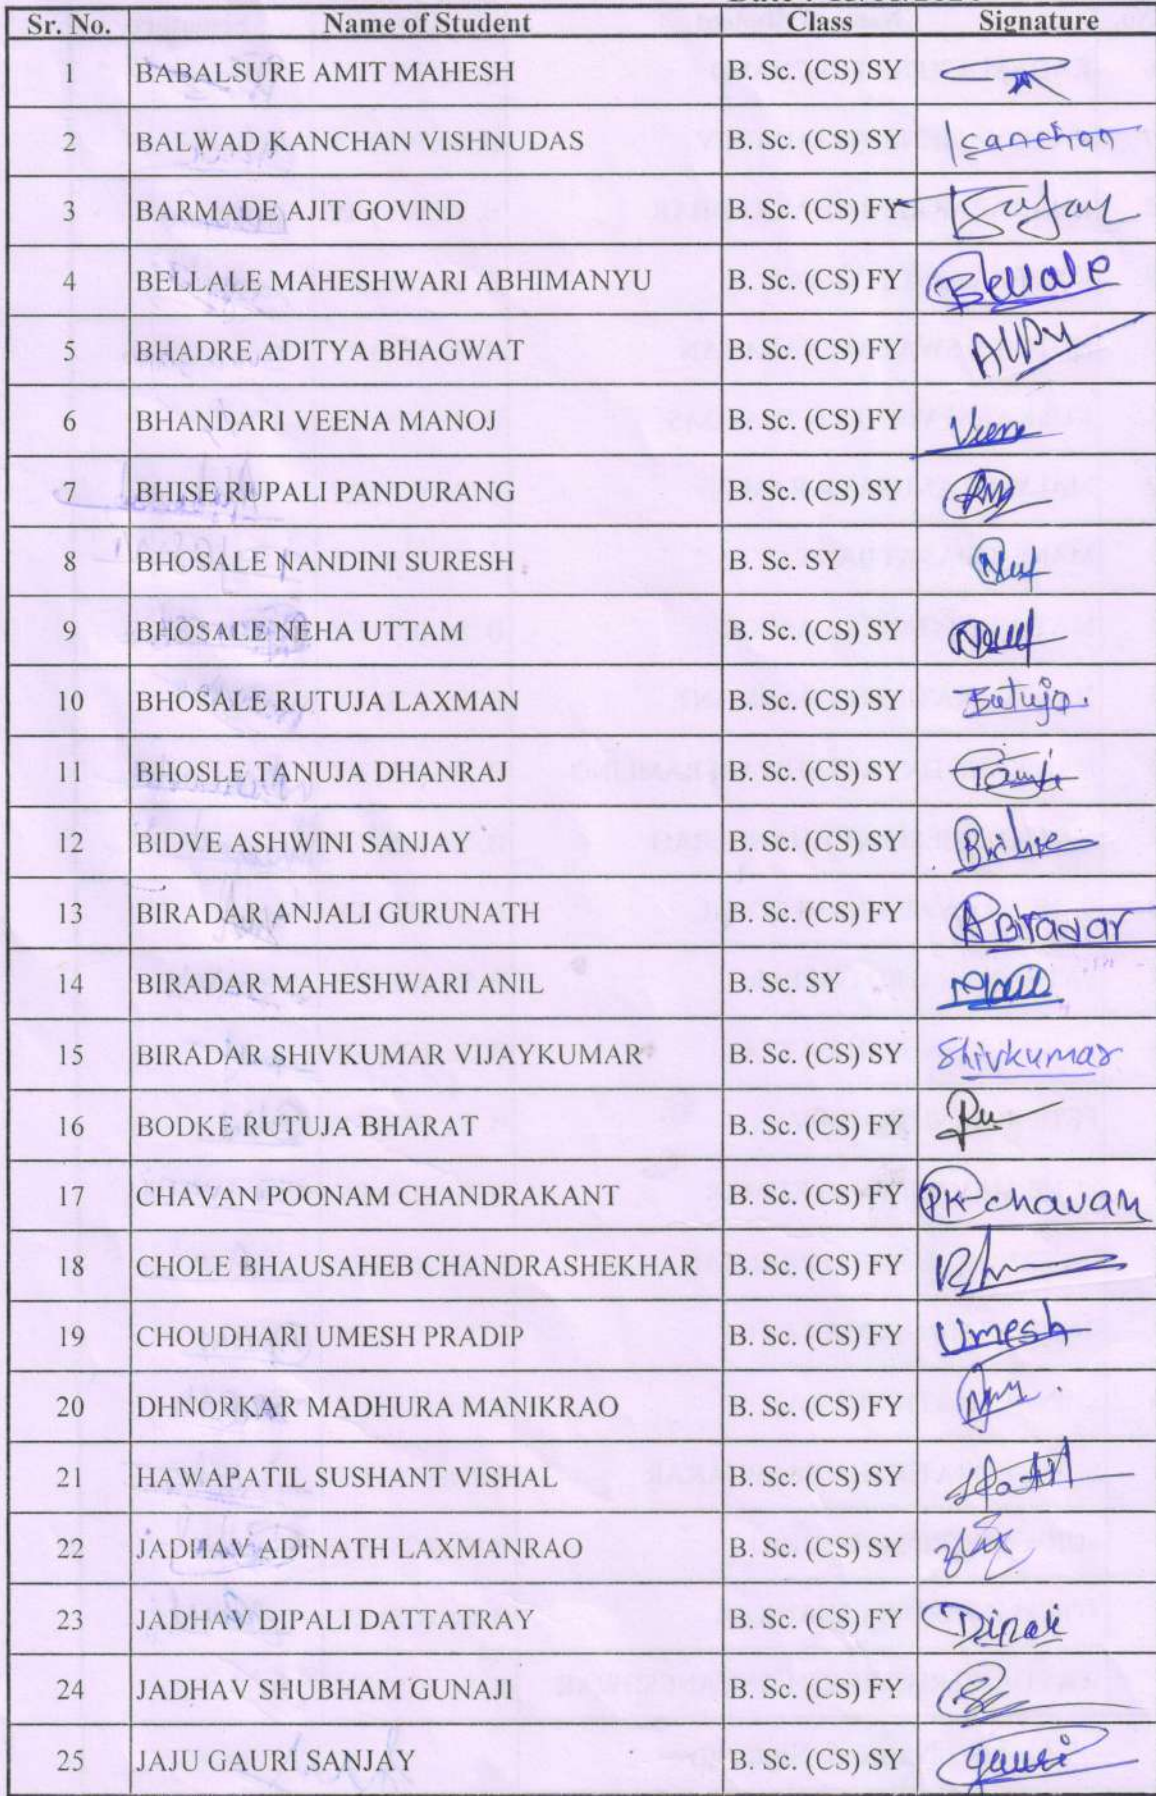 Sr. No. Name of Student Class Signature
1 BABALSURE AMIT MAHESH B. Sc. (CS) SY
2 BALWAD KANCHAN VISHNUDAS B. Sc. (CS) SY Kanchan
3 BARMADE AJIT GOVIND B. Sc. (CS) FY
4 BELLALE MAHESHWARI ABHIMANYU B. Sc. (CS) FY Bellale
5 BHADRE ADITYA BHAGWAT B. Sc. (CS) FY
6 BHANDARI VEENA MANOJ B. Sc. (CS) FY Veena
7 BHISE RUPALI PANDURANG B. Sc. (CS) SY
8 BHOSALE NANDINI SURESH B. Sc. SY
9 BHOSALE NEHA UTTAM B. Sc. (CS) SY
10 BHOSALE RUTUJA LAXMAN B. Sc. (CS) SY Rutuja.
11 BHOSLE TANUJA DHANRAJ B. Sc. (CS) SY
12 BIDVE ASHWINI SANJAY B. Sc. (CS) SY
13 BIRADAR ANJALI GURUNATH B. Sc. (CS) FY ABiradar
14 BIRADAR MAHESHWARI ANIL B. Sc. SY
15 BIRADAR SHIVKUMAR VIJAYKUMAR B. Sc. (CS) SY Shivkumar
16 BODKE RUTUJA BHARAT B. Sc. (CS) FY
17 CHAVAN POONAM CHANDRAKANT B. Sc. (CS) FY PK chavan
18 CHOLE BHAUSAHEB CHANDRASHEKHAR B. Sc. (CS) FY
19 CHOUDHARI UMESH PRADIP B. Sc. (CS) FY Umesh
20 DHNORKAR MADHURA MANIKRAO B. Sc. (CS) FY
21 HAWAPATIL SUSHANT VISHAL B. Sc. (CS) SY
22 JADHAV ADINATH LAXMANRAO B. Sc. (CS) SY
23 JADHAV DIPALI DATTATRAY B. Sc. (CS) FY Dipali
24 JADHAV SHUBHAM GUNAJI B. Sc. (CS) FY
25 JAJU GAURI SANJAY B. Sc. (CS) SY gauri